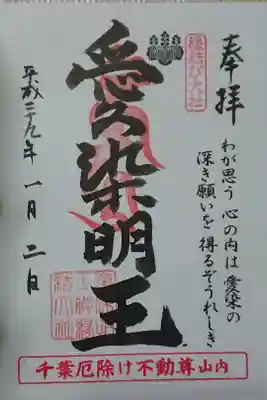 奉拝
縁結び大社
わが思う 心の内は 愛染の
深き願いを 得るぞうれしき
愛染明王
平成二十九年 一月 二日
千葉厄除け不動尊山内